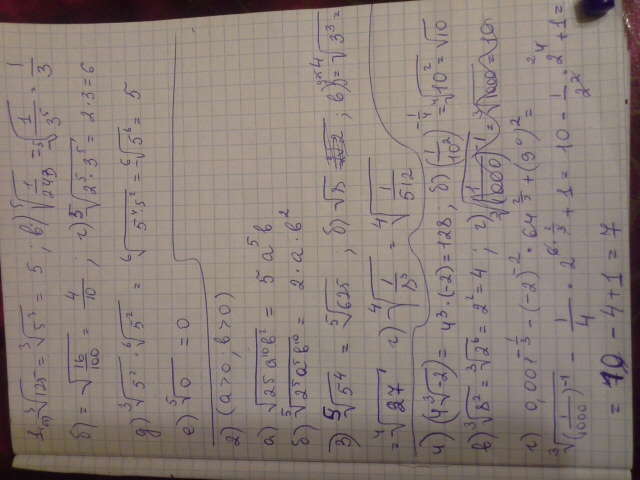 1. a) ∛125 = ∛5³ = 5 ; в) ⁵√(1/243) = ⁵√(1/3⁵) = 1/3
б) = √(16/100) = 4/10 ; г) ⁵√(2⁵·3⁵) = 2·3 = 6
д) ∛5² · ⁶√5² = ⁶√(5⁴·5²) = ⁶√5⁶ = 5
е) ⁵√0 = 0
2) (a>0, b>0)
а) √(25a¹⁰b²) = 5a⁵b
б) ⁵√(2⁵a⁵b¹⁰) = 2·a·b²
3) ⁵√5⁴ = ⁵√625 , б) √8 , в) = √3³ =
= ⁴√27 г) ⁴√(1/8³) = ⁴√(1/512)
4) (4∛-2) = 4³·(-2) = 128 ; б) (1/10²)^(-1/4) = ⁴√10² = √10
в) ∛8² = ∛2⁶ = 2² = 4 ; г) = ∛1000 = 10
г) 0,001^(-1/3) - (-2)⁻² · 64^(2/3) + (9⁰)² =
∛(1/1000)⁻¹ - 1/4 · 2^(6·2/3) + 1 = 10 - 1/2² · 2⁴ + 1 =
= 10 - 4 + 1 = 7